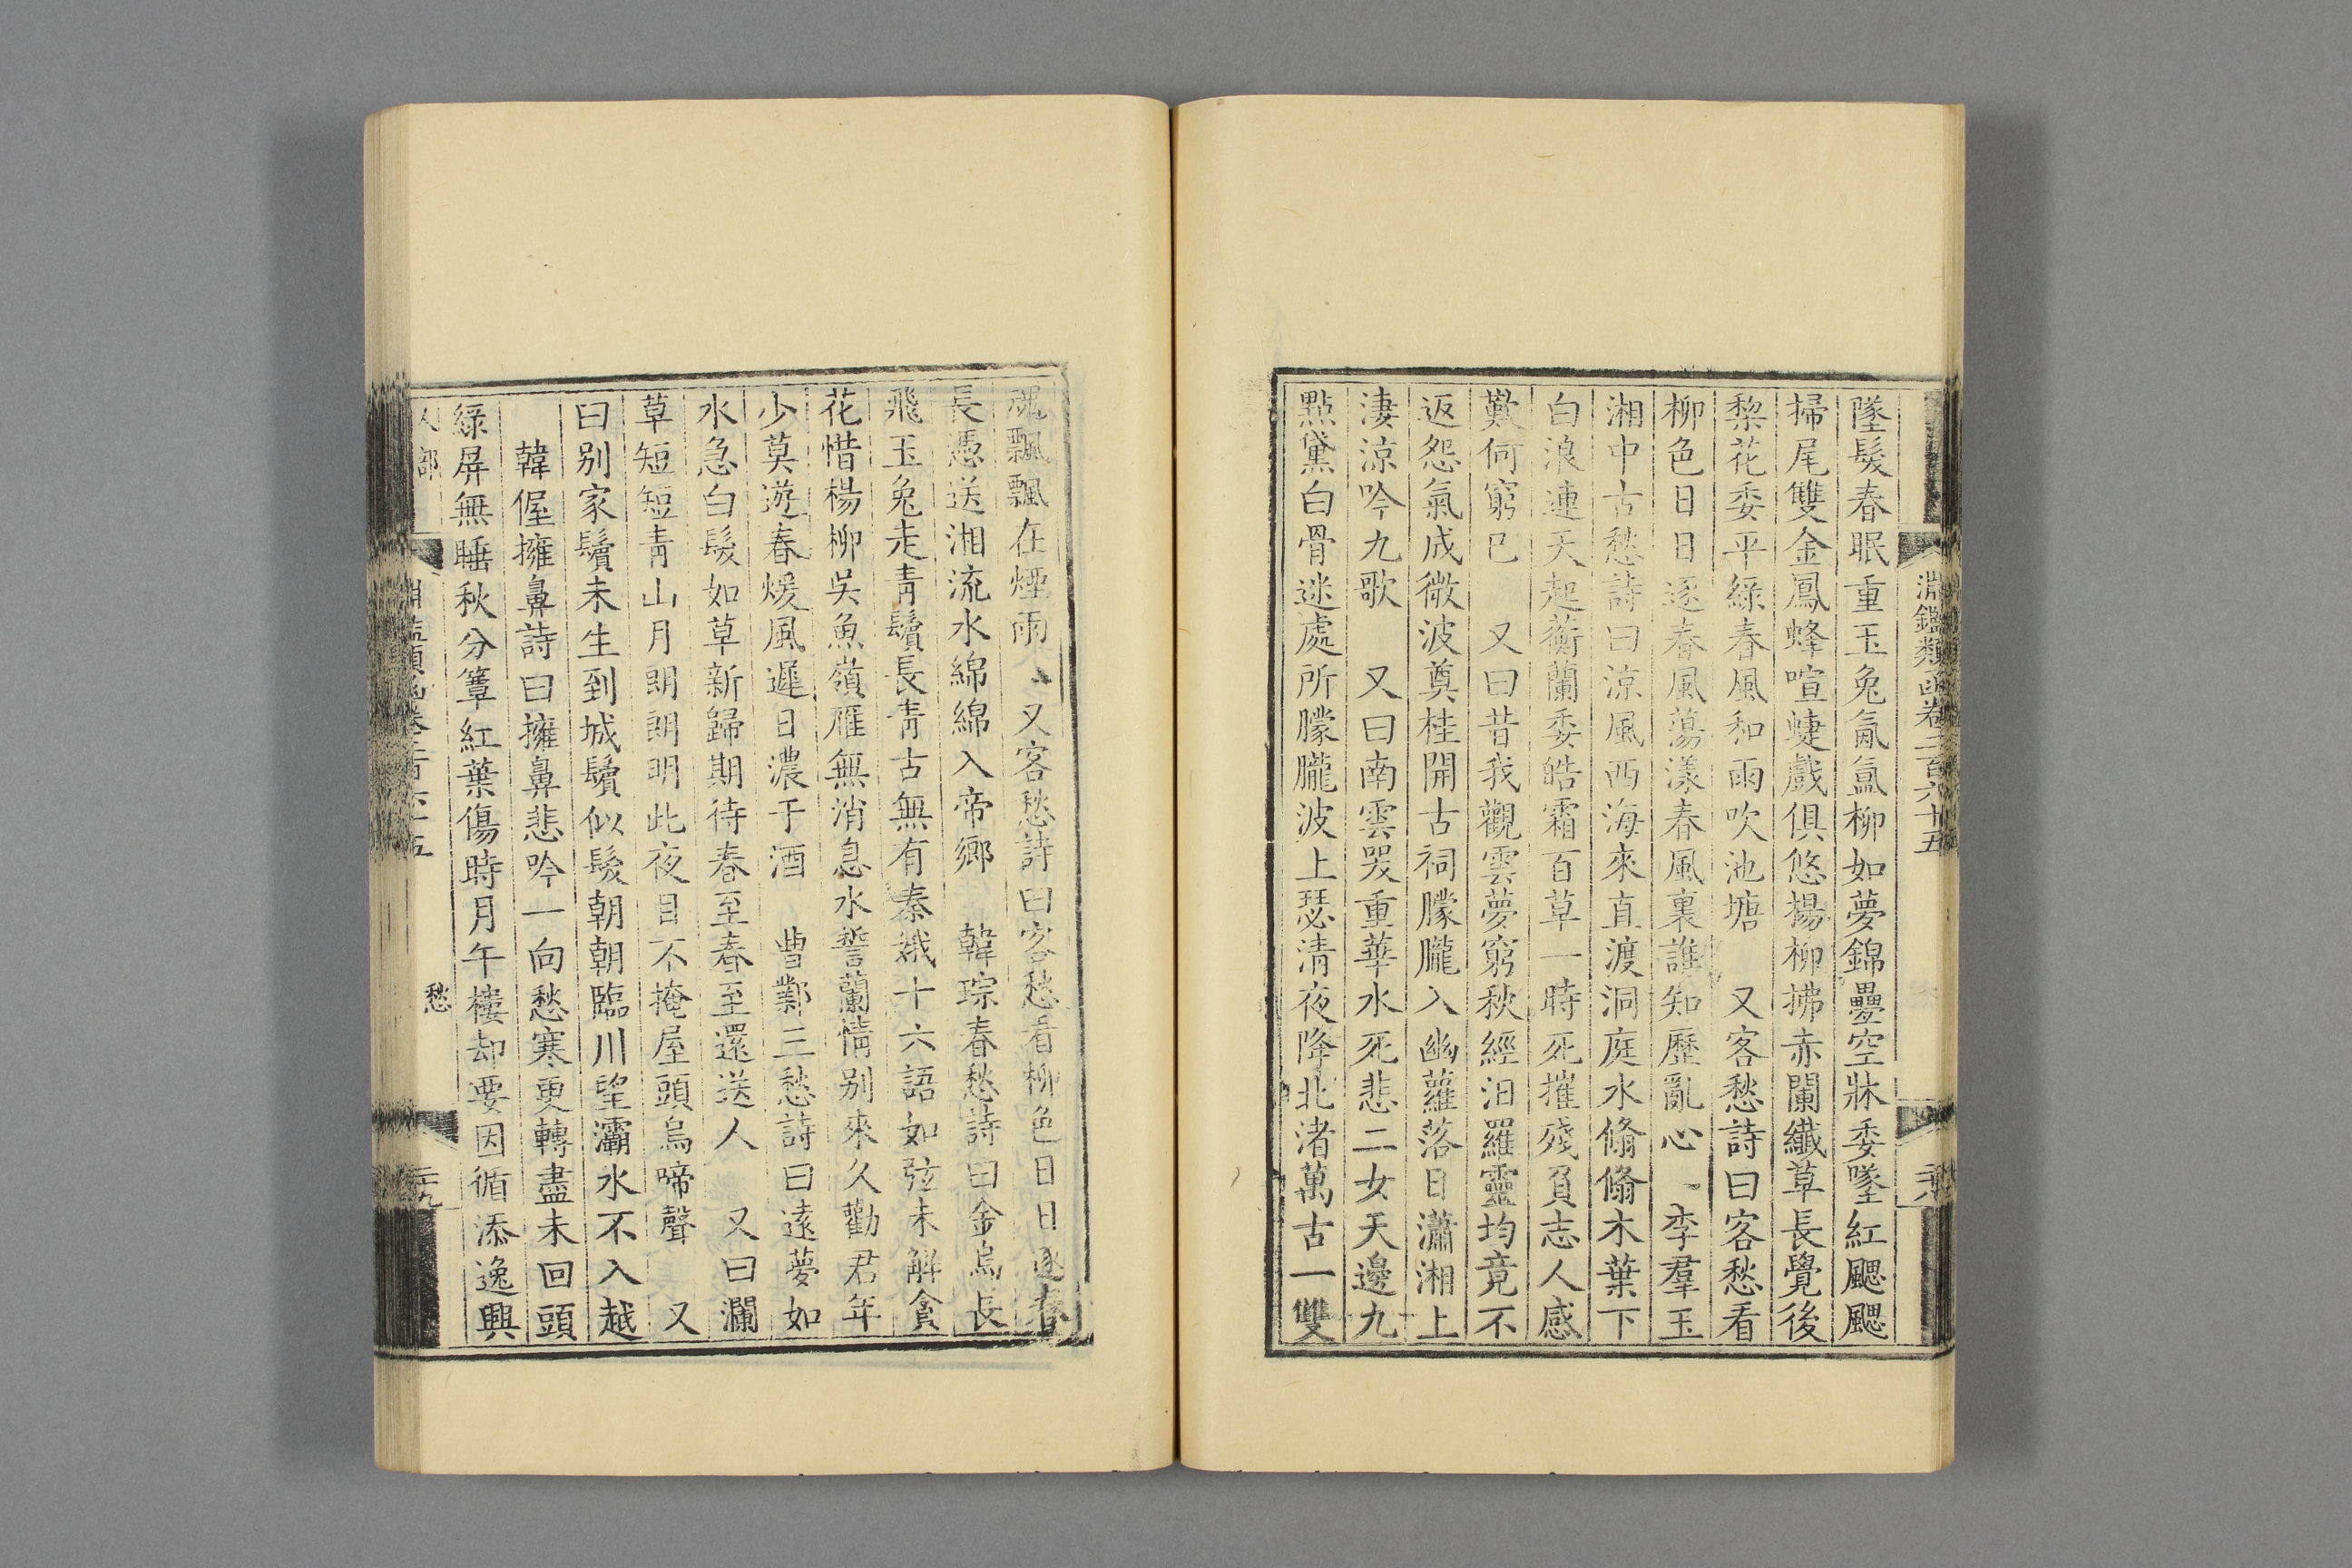 淵鑑類函卷二百六十五
墜髮春眠重玉兔氤氳柳如夢錦疊空牀委墜紅颸颸
掃尾雙金鳳蜂喧蜨戲俱悠揚柳拂赤闌纖草長覺後
棃花委平綠春風和雨吹池塘　又客愁詩曰客愁看
柳色日日逐春風蕩漾春風裏誰知歷亂心　李羣玉
湘中古愁詩曰涼風西海來直渡洞庭水翛翛木葉下
白浪連天起蘅蘭委皓霜百草一時死摧殘負志人感
歎何窮已　又曰昔我觀雲夢窮秋經汨羅靈均竟不
返怨氣成微波奠桂開古祠朦朧入幽蘿落日瀟湘上
淒涼吟九歌　又曰南雲哭重華水死悲二女天邊九
點黛白骨迷處所朦朧波上瑟清夜降北渚萬古一雙
魂飄飄在煙雨　又客愁詩曰客愁看柳色日日逐春
長憑送湘流水綿綿入帝鄉　韓琮春愁詩曰金烏長
飛玉兔走青鬢長青古無有秦娥十六語如弦未解貪
花惜楊柳吳魚嶺雁無消息水誓蘭情别來久勸君年
少莫遊春煖風遲日濃于酒　曹鄴三愁詩曰遠夢如
水急白髮如草新歸期待春至春至還送人　又曰瀾
草短短青山月朗朗明此夜目不掩屋頭烏啼聲　又
曰别家鬢未生到城鬢似髮朝朝臨川望灞水不入越
韓偓擁鼻詩曰擁鼻悲吟一向愁寒更轉盡未回頭
綠屏無睡秋分簟紅葉傷時月午樓却要因循添逸興
人部
愁